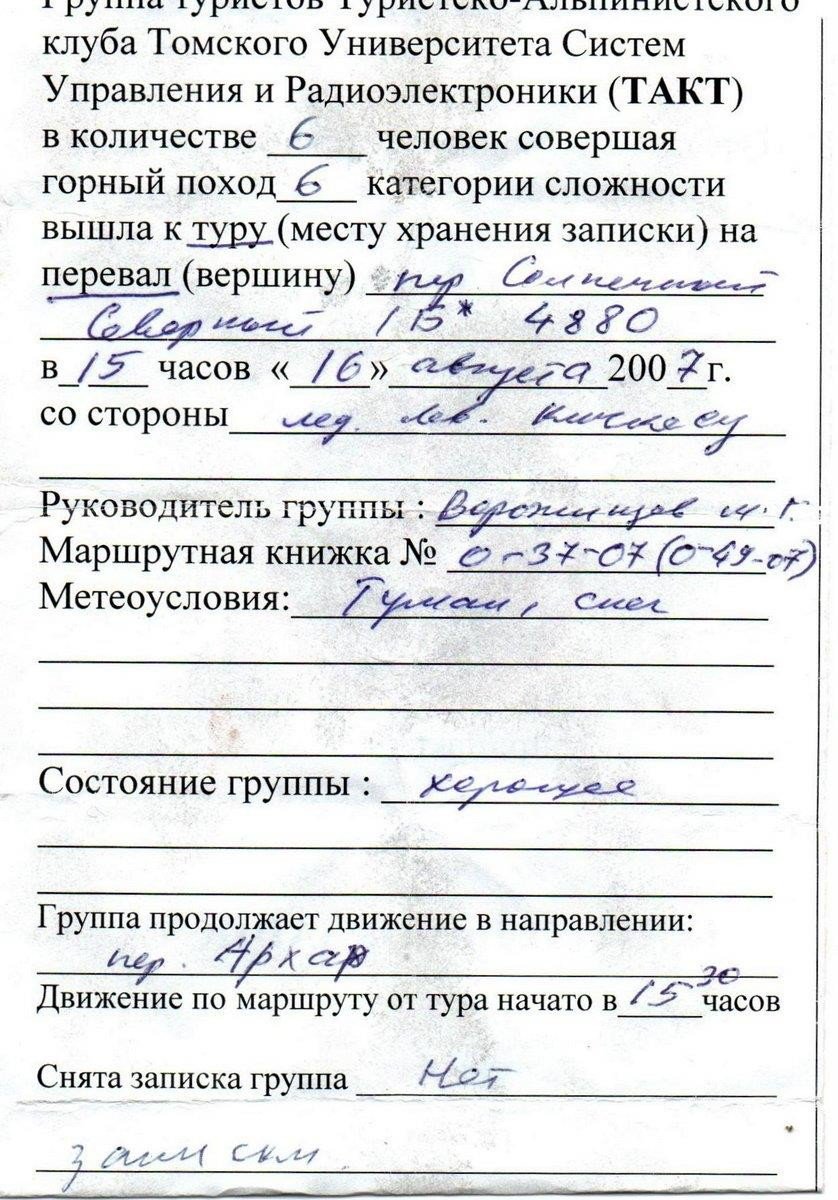 Группа туристов Туристско-Альпинистского
клуба Томского Университета Систем
Управления и Радиоэлектроники (ТАКТ)
в количестве 6 человек совершая
горный поход 6 категории сложности
вышла к туру (месту хранения записки) на
перевал (вершину) пер Солнечный
Северный 1Б* 4880
в 15 часов «16» августа 2007 г.
со стороны лед. Лев. Кичкесу
Руководитель группы : Ворожищев М. Г.
Маршрутная книжка № 0-37-07 (0-49-07)
Метеоусловия: Туман, снег
Состояние группы : хорошее
Группа продолжает движение в направлении:
пер. Архар
Движение по маршруту от тура начато в 15 30 часов
Снята записка группа Нет
записки.